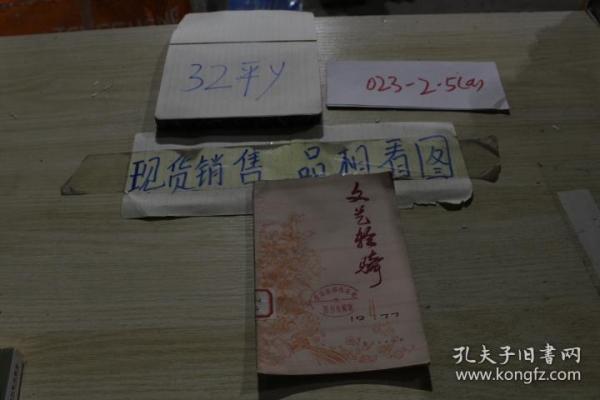 32平y
023-2.5(a)
现货销售 品相看图
文艺轻骑
1977
孔夫子旧书网
www.kongfz.com